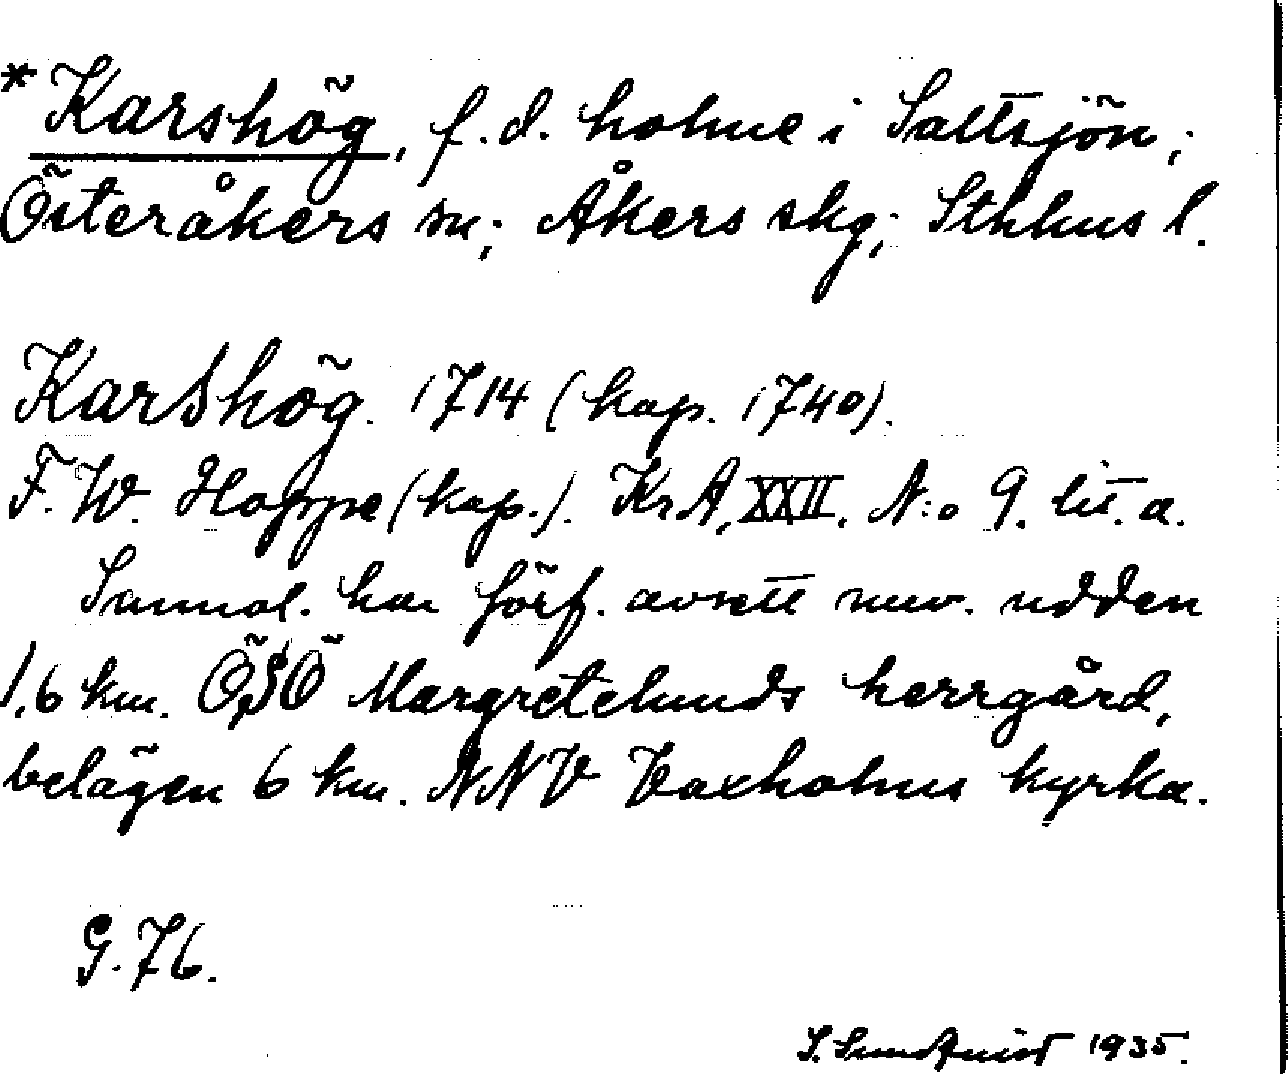 *Karshög, f.d. holme i Saltsjön;
Österåkers sn; Åkers skg; Sthlms l.
Karshög. 1714 (kap. 1740).
F. W. Hoppe (kap.). KrA, XXII. N:o 9. lit. a.
Sannol. har förf. avsett nuv. udden
1,6 km. ÖSÖ Margretelunds herrgård,
belägen 6 km. NNV Vaxholms kyrka.
G. 76.
S. Sundquist 1935.